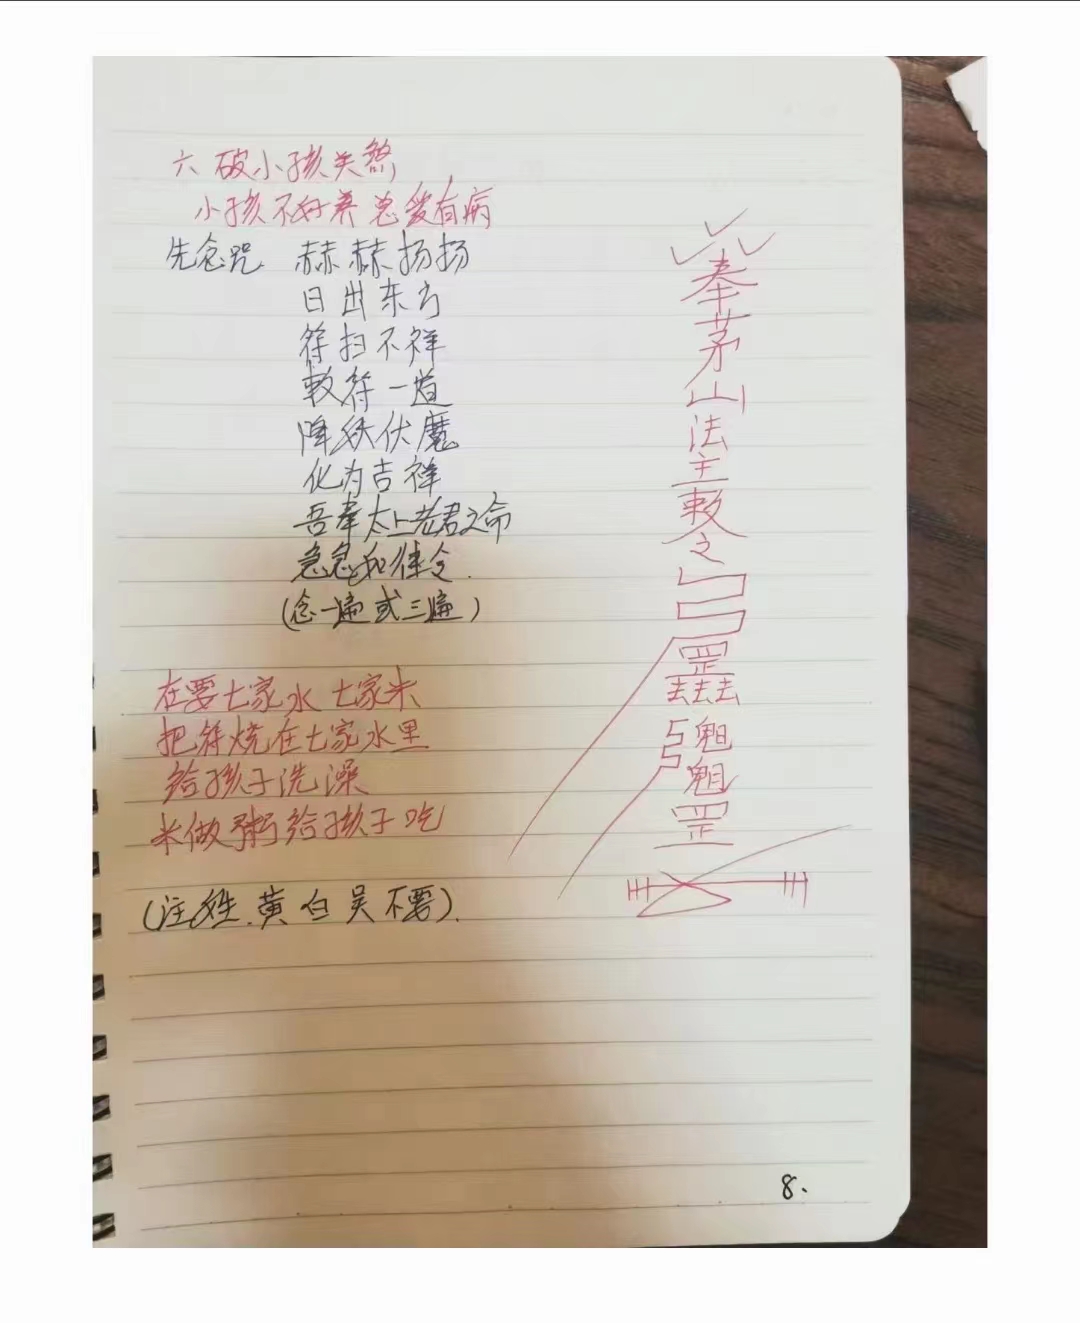 六 破小孩关煞
小孩不好养总爱有病
先念咒 赫赫扬扬
日出东方
符扫不祥
敕符一道
降妖伏魔
化为吉祥
吾奉太上老君之命
急急如律令.
(念一遍或三遍)
在要七家水 七家米
把符烧在七家水里
给孩子洗澡
米做粥给孩子吃
(注姓.黄白吴不要).
奉
茅
山
法
主
敕
令
之
罡
去去去
罡
8.